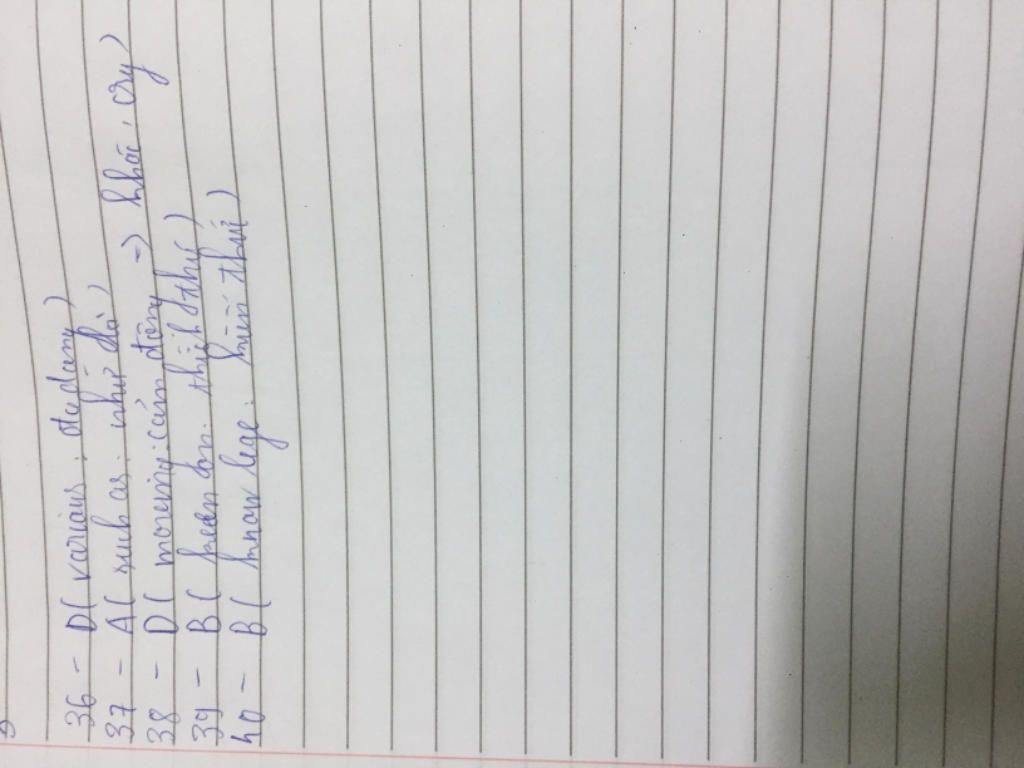 36 - D ( various : đa dạng )
37 - A ( such as : như là )
38 - D ( moving : cảm động => khóc, cry )
39 - B ( keen on : thích thú )
40 - B ( knowlege : kiến thức )